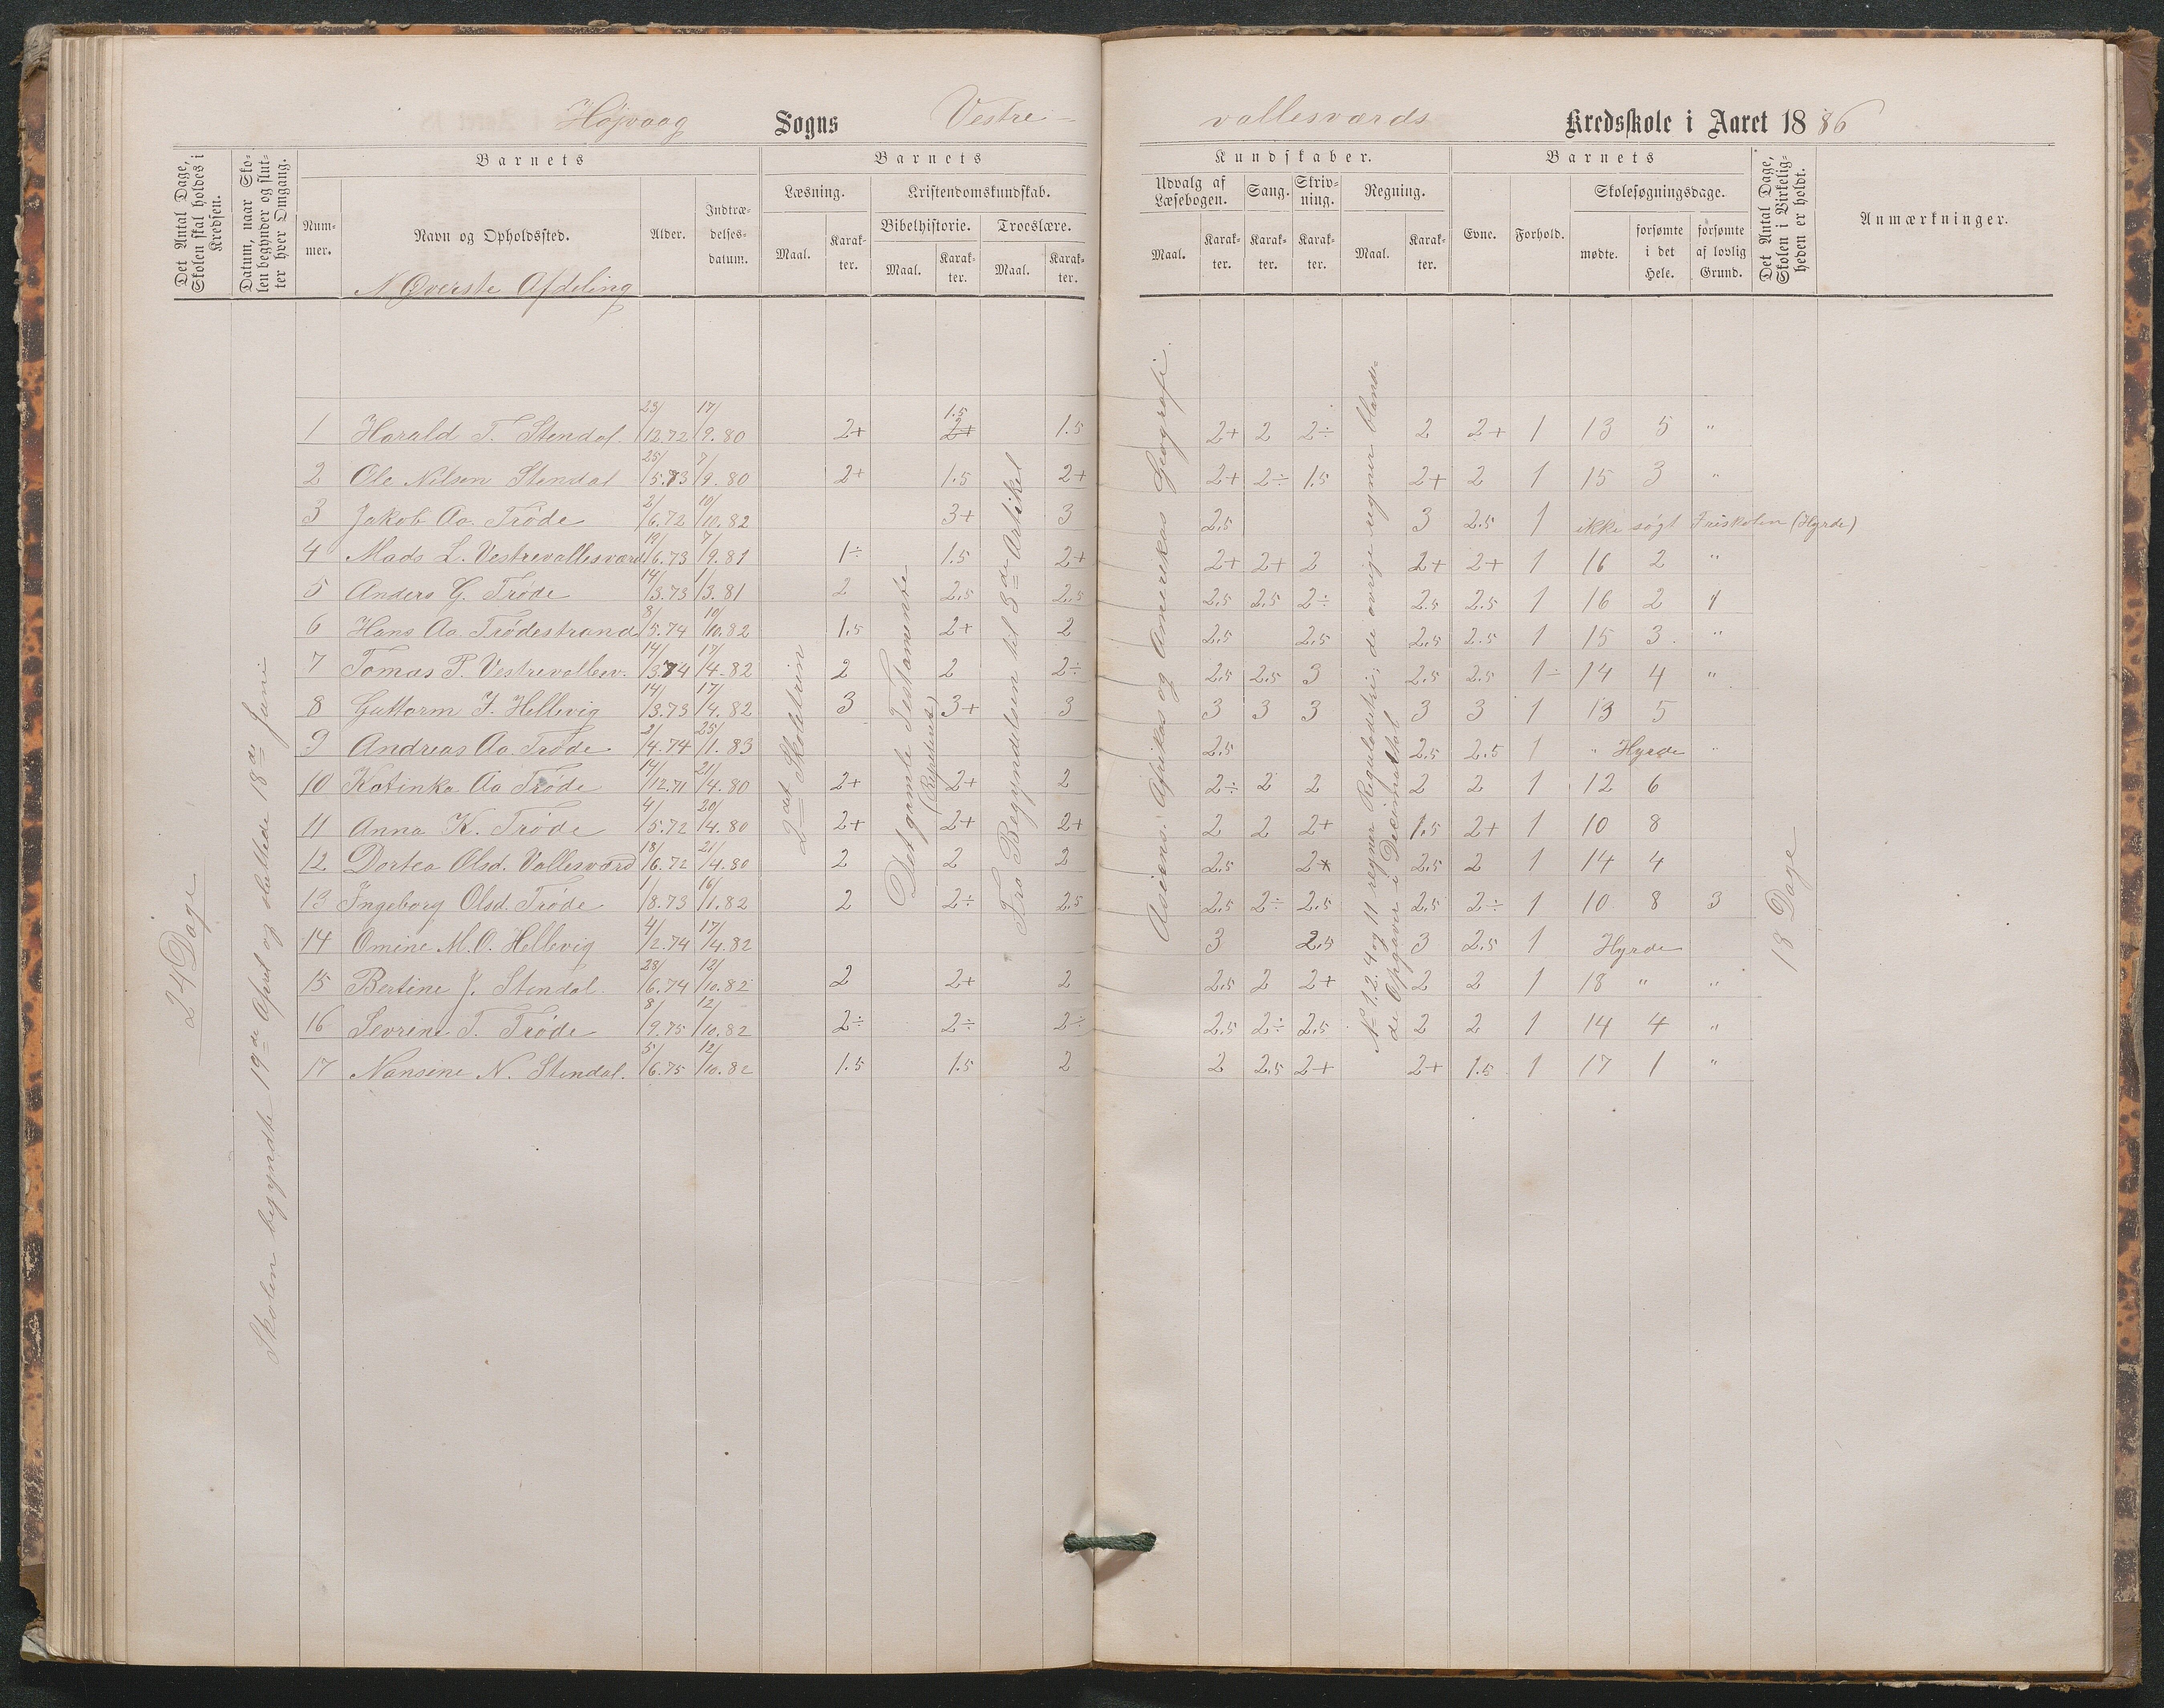 Højvaag Sogns Vestre-
vallesværds Kredsskole i Aaret 1886
Det Antal Dage, Skolen skal holdes i Kredsen.
Datum, naar Skolen begynder og slutter hver Omgang.
Barnets
Nummer.
Navn og Opholdssted.
Alder.
Indtrædelsesdatum.
Barnets
Læsning.
Kristendomskundskab.
Maal.
Karakter.
Bibelhistorie.
Troeslære.
Maal.
Karakter.
Maal.
Karakter.
Kundskaber.
Udvalg af Læsebogen.
Sang.
Skrivning.
Regning.
Maal.
Karakter.
Karakter.
Karakter.
Maal.
Karakter.
Barnets
Evne.
Forhold.
Skolesøgningsdage.
mødte.
forsømte i det Hele.
forsømte af lovlig Grund.
Det Antal Dage, Skolen i Virkeligheden er holdt.
Anmærkninger.
Øverste Afdeling
24 Dage
Skolen begyndte 19de April og sluttede 18de Juni
2det Skoletrin
Det gamle Testamente
(Repeteret)
Fra Begyndelsen til 3de Artikel
Asiens, Afrikas og Amerikas Geografi.
No 1.2.4 og 11 regner Reguladetri; de øvrige regner blande-
de Opgaver i Decimaltal
18 Dage
1 Harald T. Stendal. 23/12.72 17/9.80 2+ 2+ 1.5 1.5 2+ 2 2÷ 2 2+ 1 13 5 "
2 Ole Nilsen Stendal 25/5.73 7/9.80 2+ 1.5 2+ 2+ 2÷ 1.5 2+ 2 1 15 3 "
3 Jakob Aa. Trøde 2/6.72 10/10.82 3+ 3 2.5 3 2.5 1 ikke søgt Friskolen (Hyrde)
4 Mads L. Vestrevallesværd 19/6.73 7/9.81 1÷ 1.5 2+ 2+ 2+ 2 2+ 2+ 1 16 2 "
5 Anders G. Trøde 14/3.73 1/3.81 2 2.5 2.5 2.5 2.5 2÷ 2.5 2.5 1 16 2 1
6 Hans Aa. Trødestrand 8/5.74 10/10.82 1.5 2+ 2 2.5 2.5 2.5 2.5 1 15 3. "
7 Tomas P. Vestrevallesv. 14/3.74 17/4.82 2 2 2÷ 2.5 2.5 3 2.5 2.5 1÷ 14 4 "
8 Guttorm J. Hellevig 14/3.73 17/4.82 3 3+ 3 3 3 3 3 3 1 13 5
9 Andreas Aa. Trøde 2/4.74 25/1.83 2.5 2.5 2.5 1 " Hyrde "
10 Katinka Aa Trøde 14/12.71 21/4.80 2+ 2+ 2 2÷ 2 2 2 2 1 12 6
11 Anna K. Trøde 4/5.72 20/4.80 2+ 2+ 2+ 2 2 2+ 1.5 2+ 1 10 8
12 Dortea Olsd. Vallesværd 18/6.72 21/4.80 2 2 2 2.5 2+ 2.5 2 1 14 4
13 Ingeborg Olsd. Trøde 1/8.73 16/1.82 2 2÷ 2.5 2.5 2÷ 2.5 2.5 2÷ 1 10 8 3
14 Omine M.O. Hellevig 4/2.74 17/4.82 3 2.5 3 2.5 1 Hyrde
15 Bertine J. Stendal 28/6.74 12/10.82 2 2+ 2 2.5 2 2+ 2 2 1 18 " "
16 Sevrine T. Trøde 8/9.75 12/10.82 2÷ 2÷ 2÷ 2.5 2÷ 2.5 2 2 1 14 4 "
17 Nansine N. Stendal. 5/6.75 12/10.82 1.5 1.5 2 2 2.5 2+ 2+ 1.5 1 17 1 "